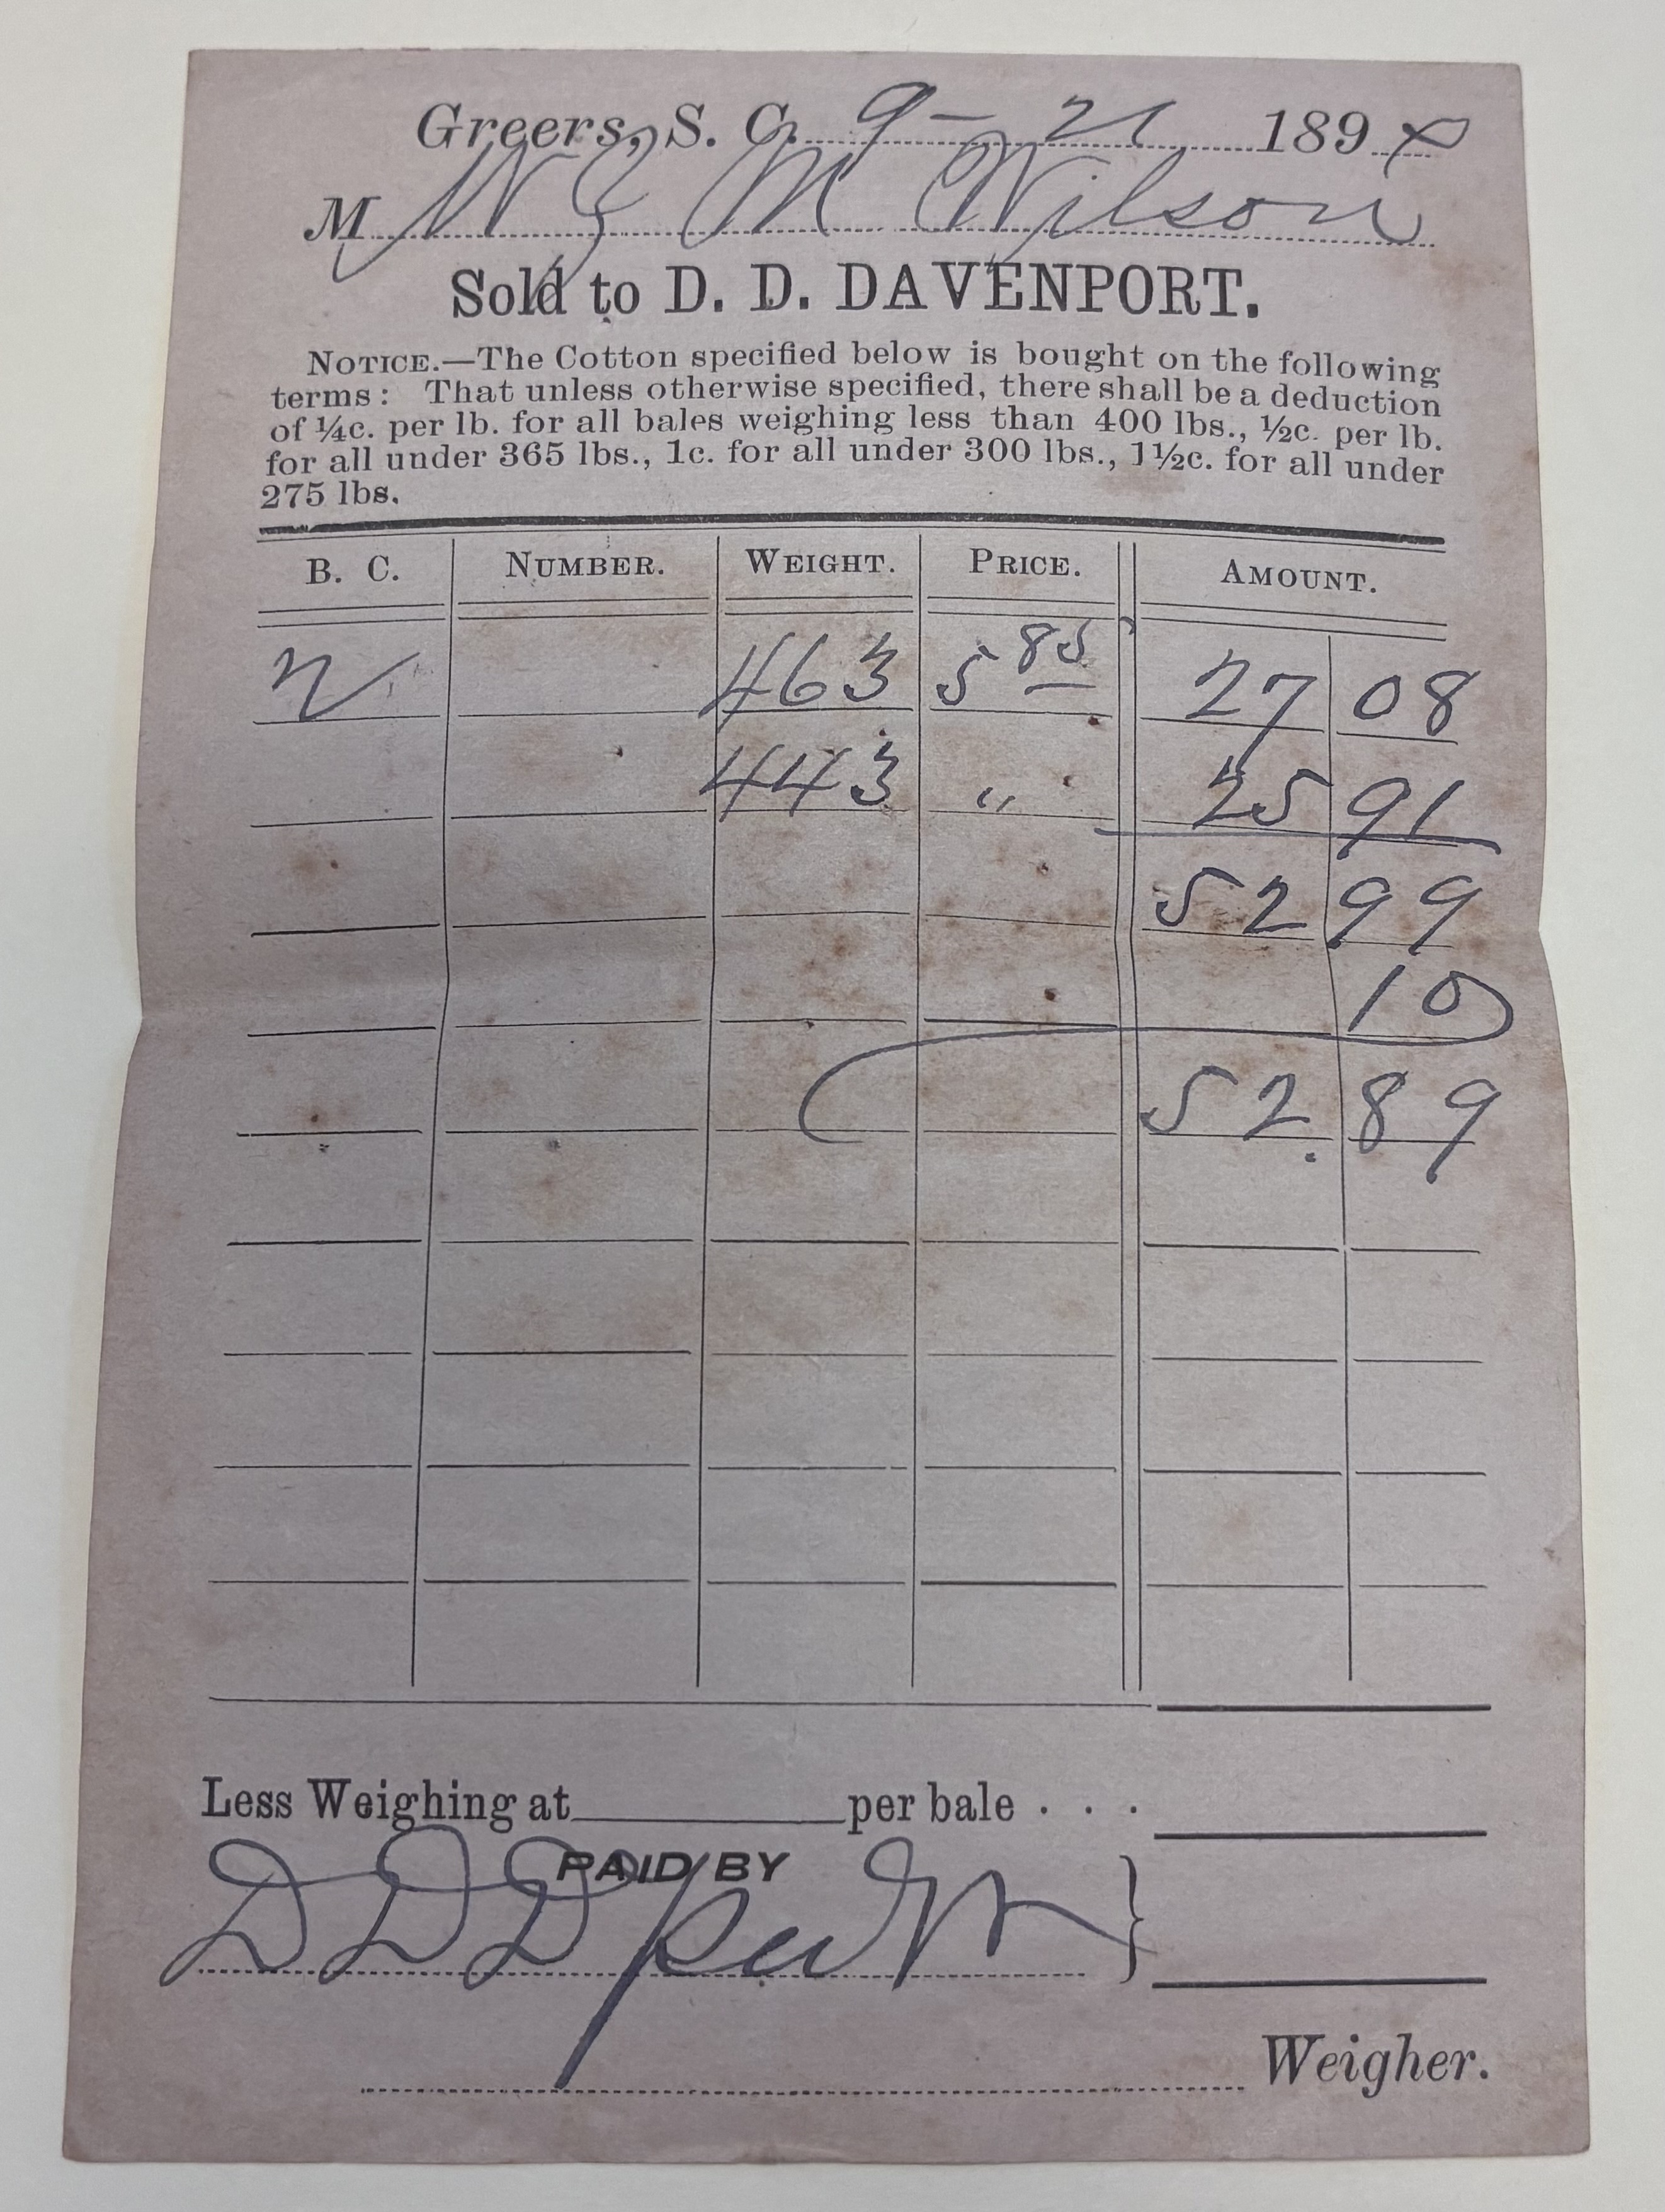 Greers, S. C. 9 - 21 189
M W M Wilson
Sold to D. D. DAVENPORT.
NOTICE.—The Cotton specified below is bought on the following
terms: That unless otherwise specified, there shall be a deduction
of ¼c. per lb. for all bales weighing less than 400 lbs., ½c. per lb.
for all under 365 lbs., 1c. for all under 300 lbs., 1½c. for all under
275 lbs.
B. C. NUMBER. WEIGHT. PRICE. AMOUNT.
463 5 85 27 08
443 " 25 91
52 99
10
52.89
Less Weighing at per bale . . .
PAID BY
DDD per
Weigher.